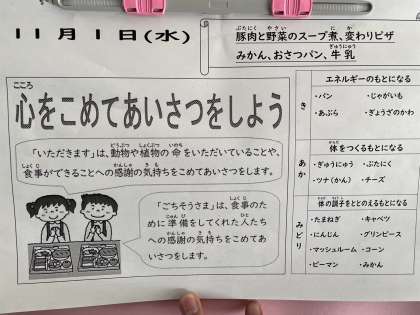 11月1日(水)
豚肉と野菜のスープ煮、変わりピザ
みかん、おさつパン、牛乳
心をこめてあいさつをしよう
「いただきます」は、動物や植物の命をいただいていることや、
食事ができることへの感謝の気持ちをこめてあいさつをします。
「ごちそうさま」は、食事のた
めに準備をしてくれた人たち
への感謝の気持ちをこめてあ
いさつをします。
き
エネルギーのもとになる
・パン ・じゃがいも
・あぶら ・ぎょうざのかわ
あか
体をつくるもとになる
・ぎゅうにゅう ・ぶたにく
・ツナ(かん) ・チーズ
みどり
体の調子をととのえるもとになる
・たまねぎ ・キャベツ
・にんじん ・グリンピース
・マッシュルーム ・コーン
・ピーマン ・みかん